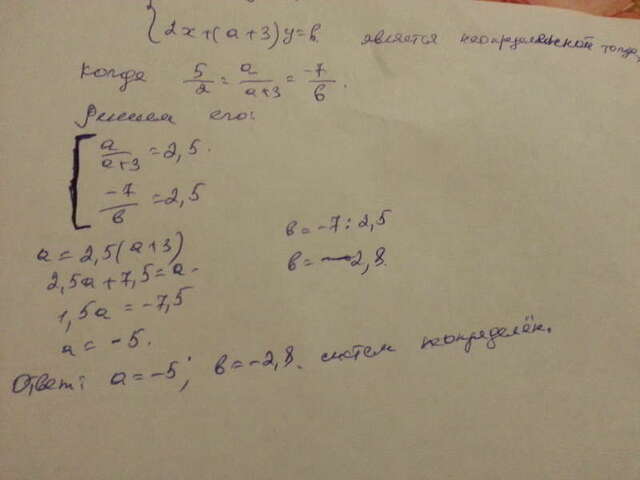 2x+(a+3)y=b является неопределённой тогда,
когда 5/2 = a/a+3 = -7/b.
Решаем его:
a/a+3 = 2,5.
-7/b = 2,5
a = 2,5(a+3)
2,5a + 7,5 = a
1,5a = -7,5
a = -5.
b = -7 : 2,5
b = -2,8.
Ответ: a = -5; b = -2,8. систем неопределён.